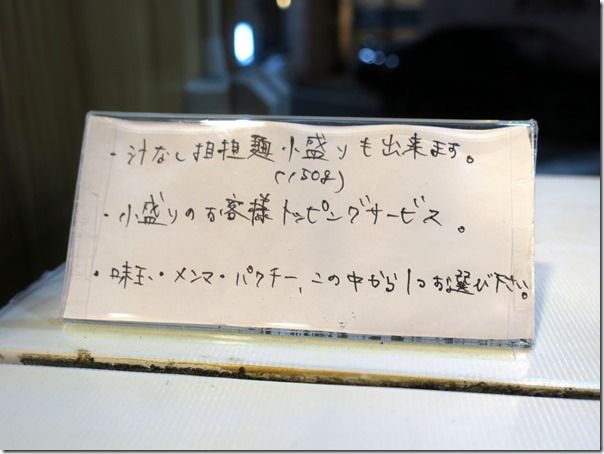 ・汁なし担担麺小盛りも出来ます。
(150g)
・小盛りのお客様トッピングサービス。
・味玉・メンマ・パクチー、この中から1つお選び下さい。